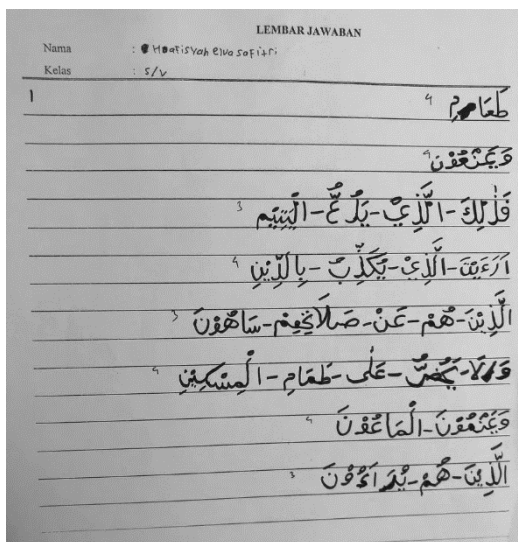 LEMBAR JAWABAN
Nama : Hoafisyah elva safitri
Kelas : 5/V
1 طَعَامِ 4
وَيَمْنَعُوْنَ 4
فَذٰلِكَ - الَّذِيْ - يَدُعُّ - الْيَتِيْم 3
اَرَءَيْتَ - الَّذِيْ - يُكَذِّبُ - بِالدِّيْنِ 4
الَّذِيْنَ - هُمْ - عَنْ - صَلَاتِهِمْ - سَاهُوْنَ 3
وَلَا - يَحُضُّ - عَلٰى - طَعَامِ - الْمِسْكِيْنِ 4
وَيَمْنَعُوْنَ - الْمَاعُوْنَ 4
الَّذِيْنَ - هُمْ - يُرَاءُوْنَ 3